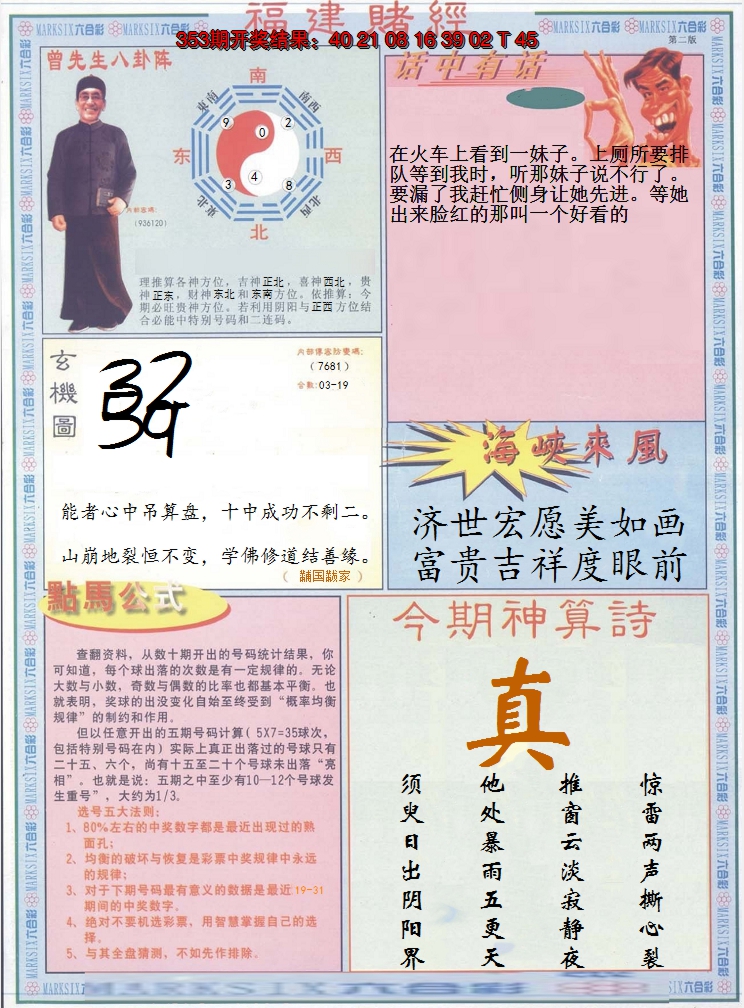 福建賭經
353期开奖结果：40 21 08 16 39 02 T 45
第二版
曾先生八卦阵
南
東南
南西
9
0
2
东
西
3
4
8
東北
北西
北
内部密碼:
(936120)
理推算各神方位，吉神正北，喜神西北，贵
神正东，财神东北和东南方位。依推算：今
期必旺贵神方位。若利用阴阳与正西方位结
合必能中特别号码和二连码。
话中有话
在火车上看到一妹子。上厕所要排
队等到我时，听那妹子说不行了。
要漏了我赶忙侧身让她先进。等她
出来脸红的那叫一个好看的
玄機圖
(7681)
合数:03-19
能者心中吊算盘，十中成功不剩二。
山崩地裂恒不变，学佛修道结善缘。
海峡來風
济世宏愿美如画
富贵吉祥度眼前
點馬公式
查翻资料，从数十期开出的号码统计结果，你
可知道，每个球出落的次数是有一定规律的。无论
大数与小数，奇数与偶数的比率也都基本平衡。也
就表明，奖球的出没变化自始至终受到“概率均衡
规律”的制约和作用。
但以任意开出的五期号码计算( 5X7=35球次，
包括特别号码在内) 实际上真正出落过的号球只有
二十五、六个，尚有十五至二十个号球未出落“亮
相”。也就是说：五期之中至少有10—12个号球发
生重号”，大约为1/3。
选号五大法则:
1、80%左右的中奖数字都是最近出现过的熟
面孔；
2、均衡的破坏与恢复是彩票中奖规律中永远
的规律；
3、对于下期号码最有意义的数据是最近19-31
期间的中奖数字。
4、绝对不要机选彩票，用智慧掌握自己的选
择。
5、与其全盘猜测，不如先作排除。
今期神算詩
真
须臾日出阴阳界
他处暴雨五更天
推窗云淡寂静夜
惊雷两声撕心裂
MARKSIX六合彩